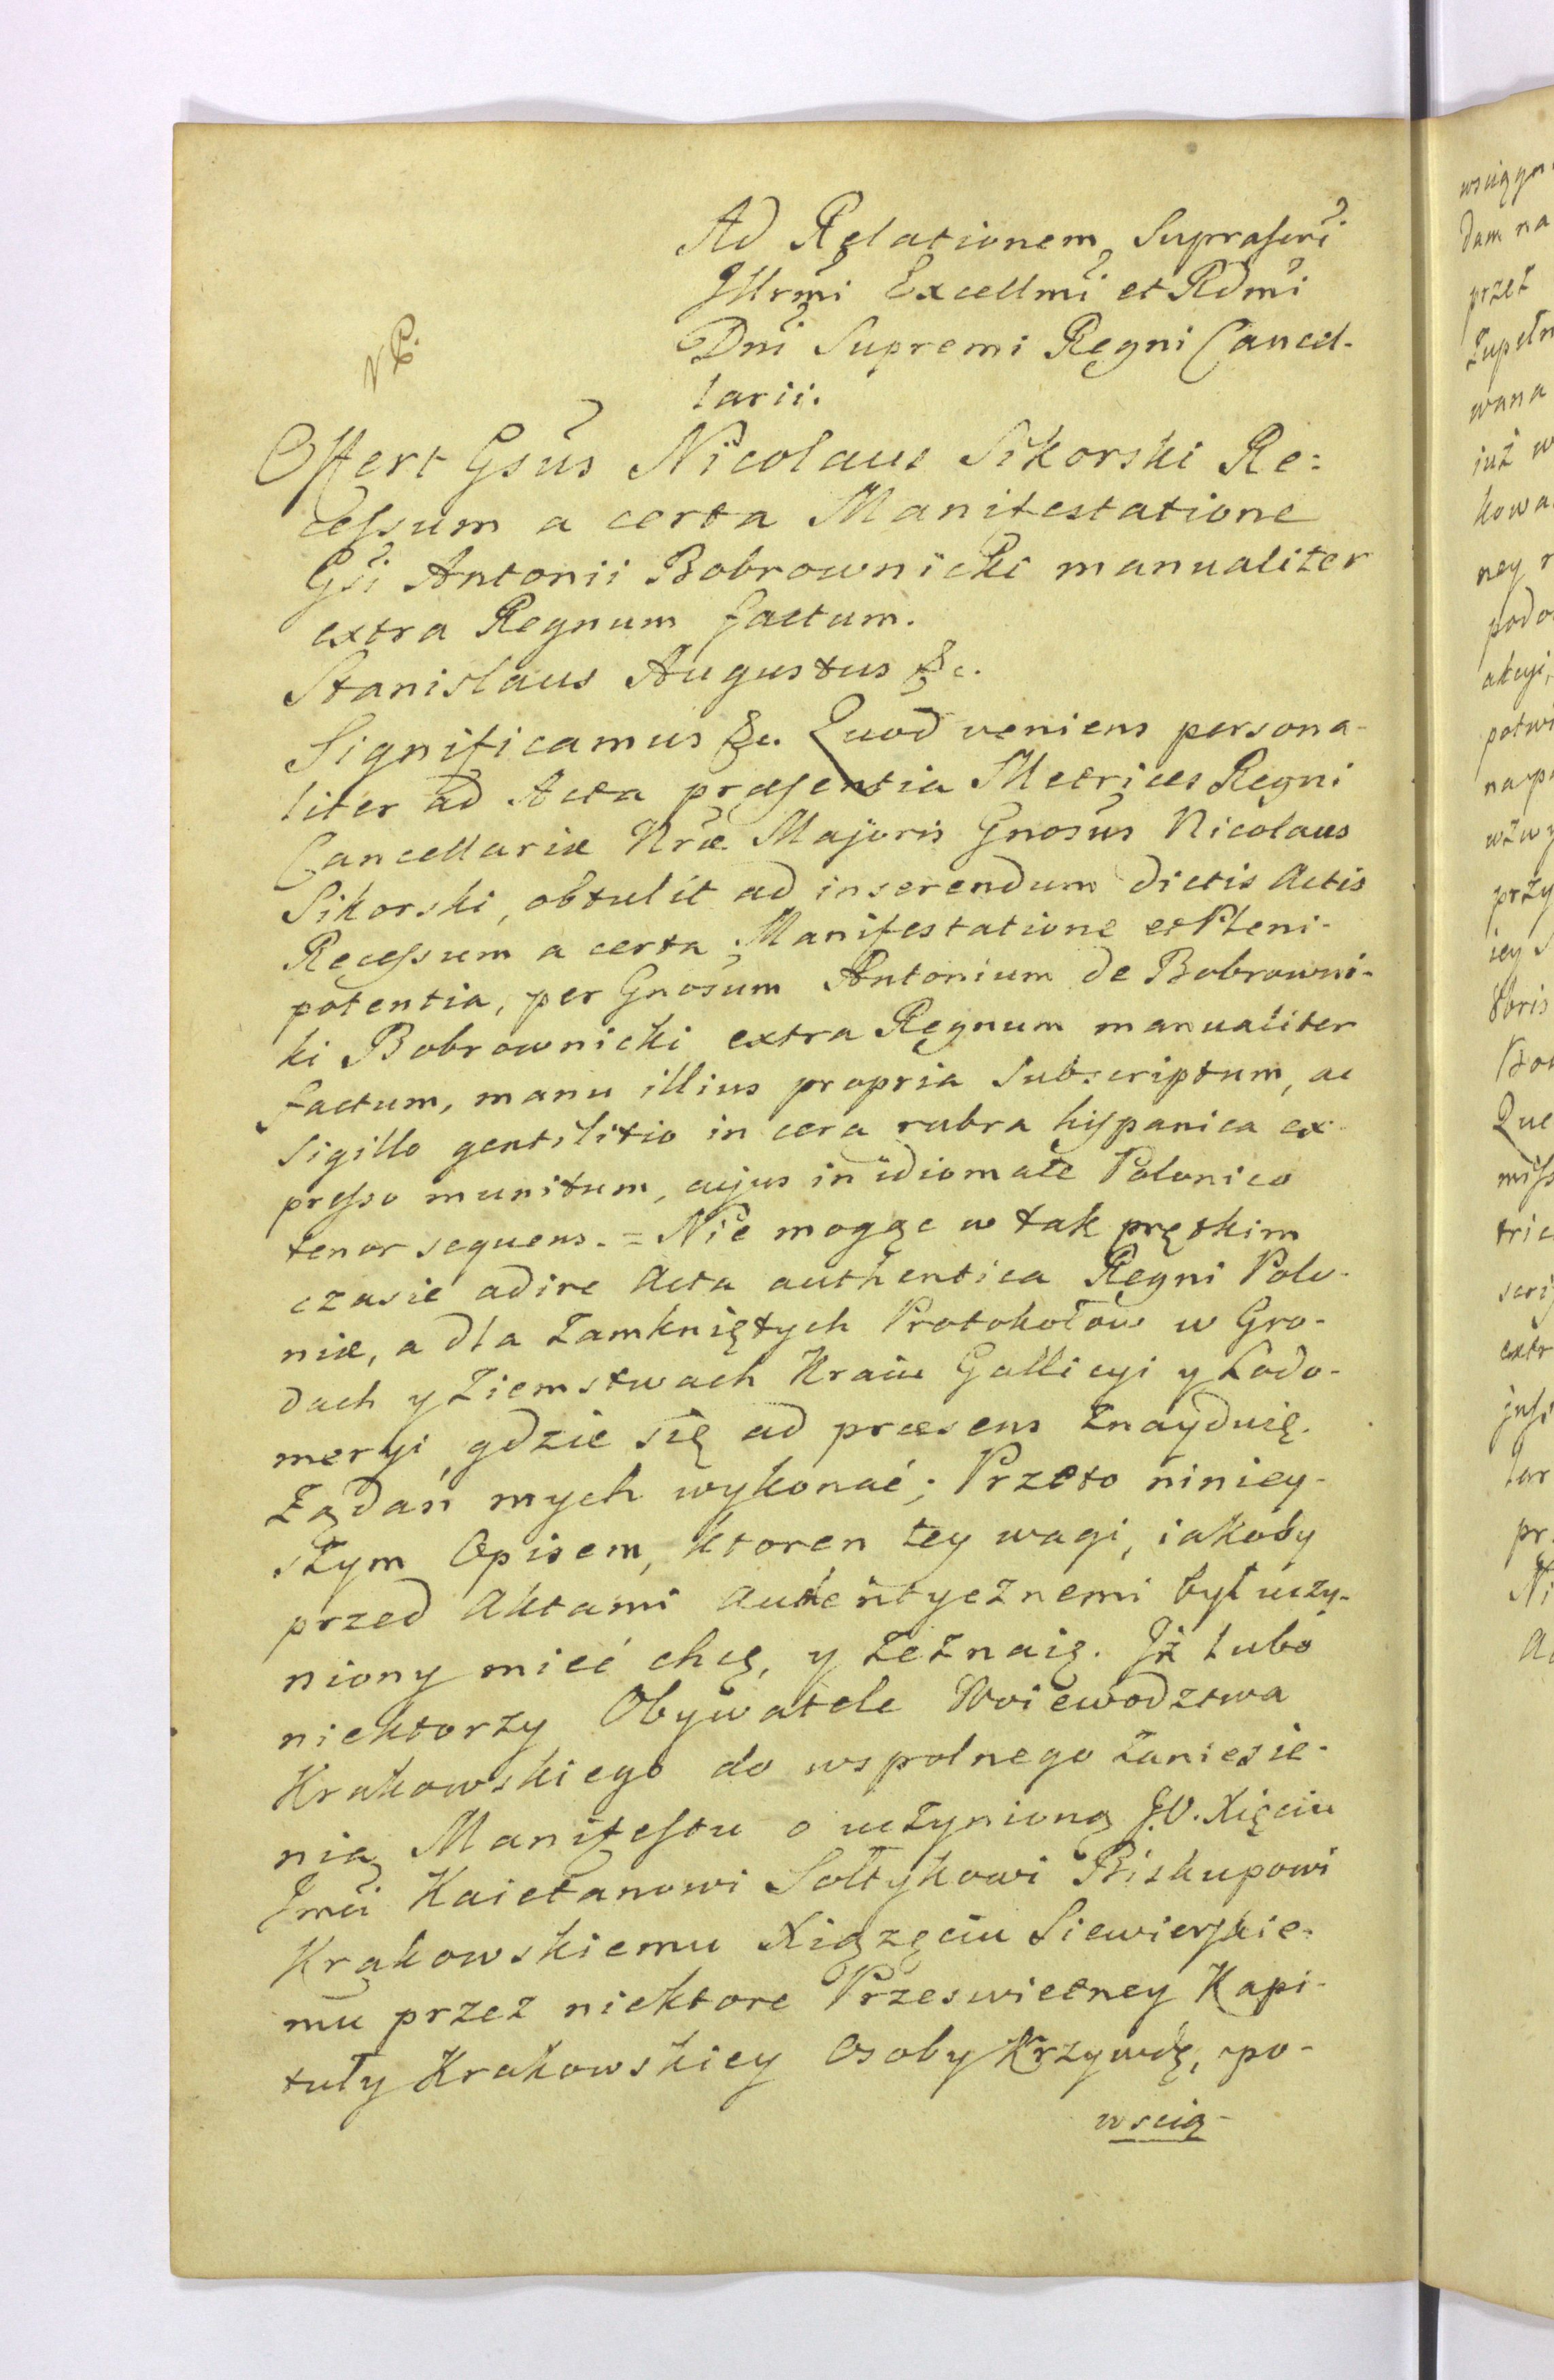 Ad Relationem Suprascri
Jllrmi Excellmi et Rdmi
Dni Supremi Regni Cancel-
larii.
Offert Gsus Nicolaus Sikorski Re=
cessum a certa Manifestatione
Gsi Antonii Bobrownicki manualiter
extra Regnum factum.
Stanislaus Augustus &c.
Significamus &c. Quod veniens persona-
liter ad Acta præsentia Metrices Regni
Cancellariæ Nræ Majoris Gnosus Nicolaus
Sikorski, obtulit ad inserendum dictis Actis
Recessum a certa Manifestatione et Pleni-
potentia, per Gnosum Antonium de Bobrowni-
ki Bobrownicki extra Regnum manualiter
factum, manu illius propria subscriptum, ac
Sigillo gentilitio in cera rubra hispanica ex-
presso munitum, cujus in idiomate Polonico
tenor sequens. = Nie mogąc w tak prętkim
czasie adire Acta authentica Regni Polo-
niæ, a dla zamkniętych Protokołow w Gro-
dach y Ziemstwach Kraiu Gallicyi y Lodo-
meryi, gdzie się ad præsens znayduię.
Ządań mych wykonać; Przeto niniey-
szym Opisem, ktoren tey wagi, iakoby
przed Aktami autentycznemi był uczy-
niony mieć chcę, y zeznaię. Jż lubo
niektorzy Obywatele Woiewodztwa
Krakowskiego do wspolnego zaniesie-
nia Manifestu o uczynioną J.O. Xięciu
Jmci Kaietanowi Sołtykowi Biskupowi
Krakowskiemu Xiązęciu Siewierskie-
mu przez niektore Przeswietney Kapi-
tuły Krakowskiey Osoby Krzywdę, po-
wscią-
wsciągn
dam na
przez
zupełn
wana
iuż w
kowa
ney r
podo
akcyi,
potwi
nayp
wzwy
przy
iey S
8bris
Bo
Que
miss
tric
scri
extr
jusi
lar
pr.
Ni